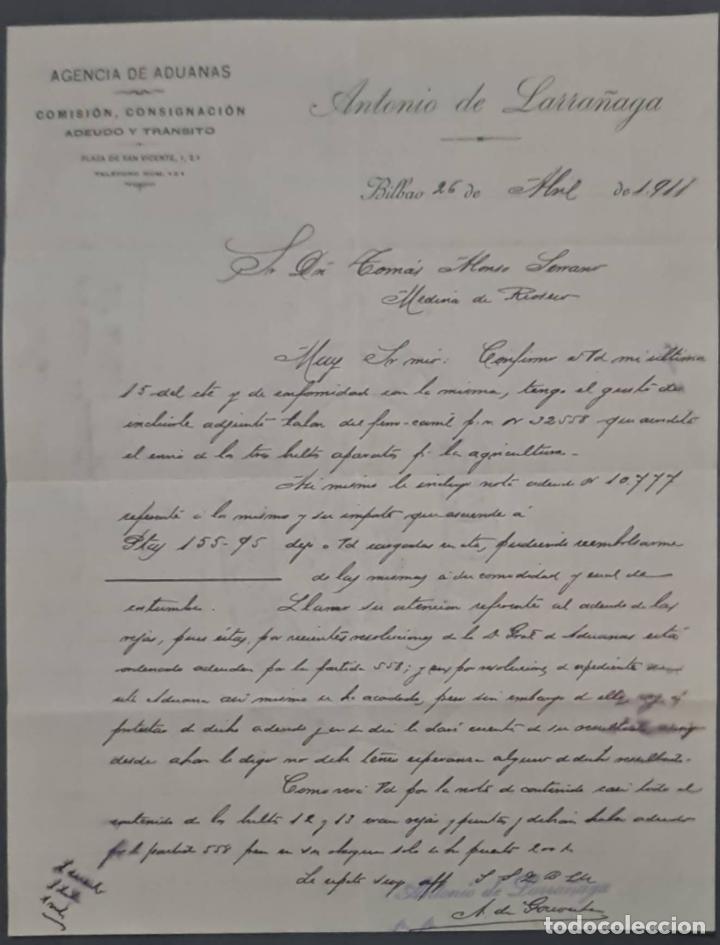 AGENCIA DE ADUANAS
COMISIÓN, CONSIGNACIÓN
ADEUDO Y TRANSITO
PLAZA DE SAN VICENTE, 1, 2.º
TELÉFONO NÚM. 121
Antonio de Larrañaga
Bilbao 26 de Abril de 1.911
Sr Dn Tomás Alonso Serrano
Medina de Rioseco
Muy Sr mio: Confirmo a Vd mi última
15 del cte y de conformidad con la misma, tengo el gusto de
incluirle adjunto talon del ferro-carril p.v. Nº 32558 que acredita
el envio de los tres bultos aparatos p. la agricultura.-
Asi mismo le incluyo nota adeudo Nº 10.777
referente a la misma y su importe que asciende á
Ptas 155-95 dejo a Vd cargadas en cta, pudiendo reembolsarme
de las mismas á su comodidad y cual de
costumbre. Llamo su atencion referente al adeudo de las
rejas, pues éstas, por recientes resoluciones de la Dn Gral de Aduanas está
ordenado adeuden por la partida 558; y por resolucion de expediente
esta Aduana asi mismo se ha acordado, pero sin embargo de ello, voy á
protestar de dicho adeudo y en su dia le daré cuenta de su resultado
desde ahora le digo no debe tener esperanza alguna de dicho resultado.
Como verá Vd por la nota de contenido casi todo el
contenido de los bultos 12 y 13 eran rejas y puntas y debian haber adeudado
por la partida 558 pero en su obsequio solo se ha puesto 200 k.
Se repite suyo affmo S S Q B S M
Antonio de Larrañaga
todocoleccion
todocoleccion.net